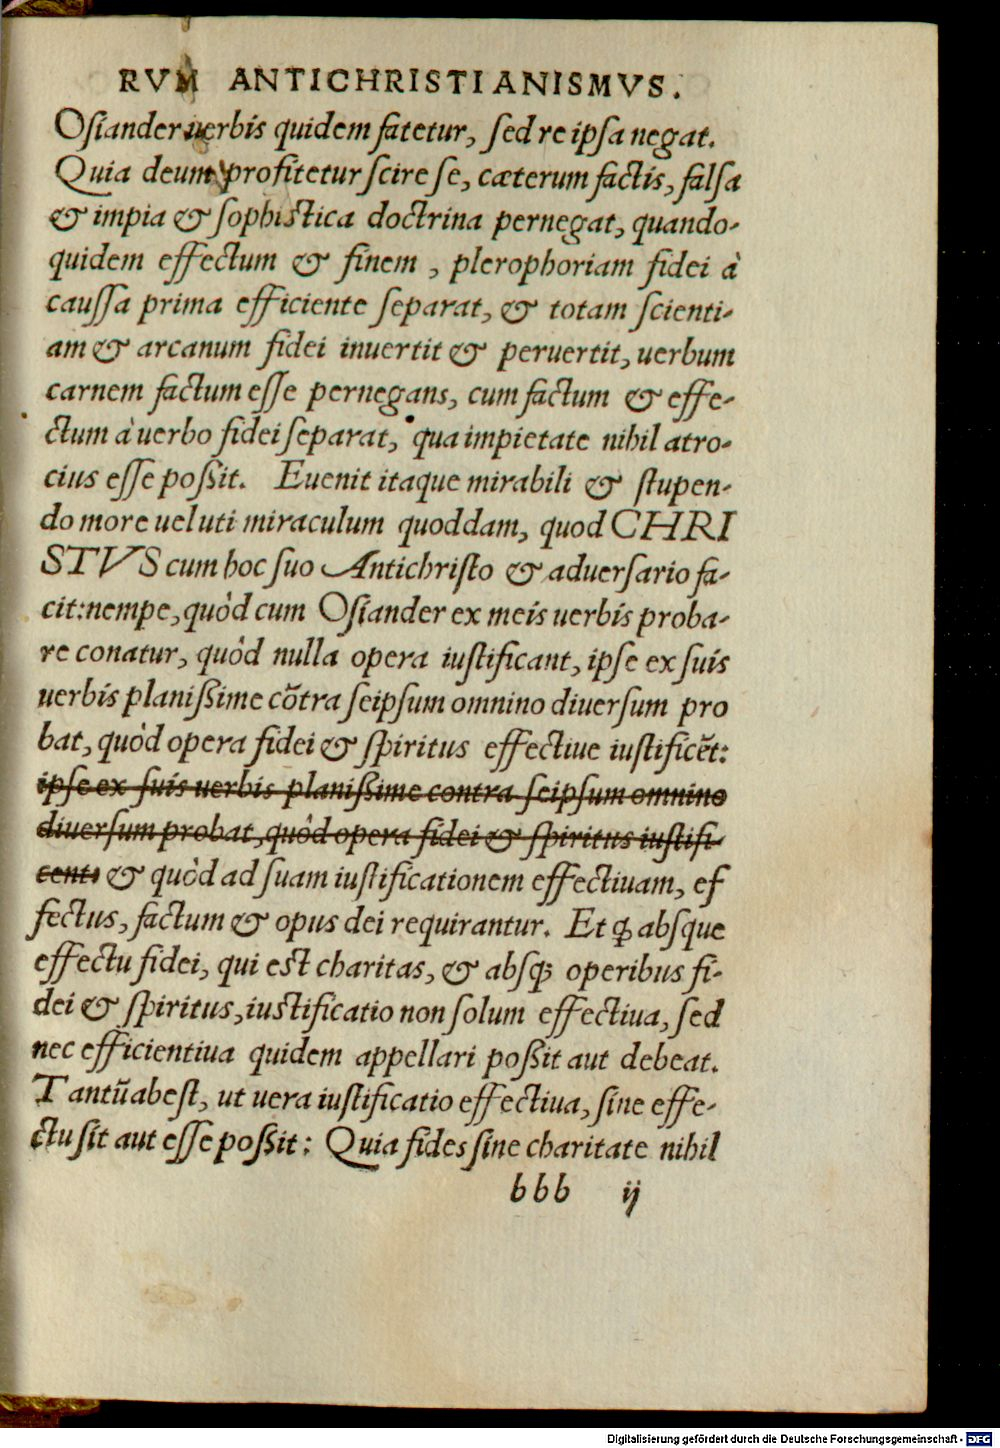 RVM ANTICHRISTIANISMVS.
Osiander uerbis quidem fatetur, sed re ipsa negat.
Quia deum profitetur scire se, cæterum factis, falsa
& impia & sophistica doctrina pernegat, quando-
quidem effectum & finem, plerophoriam fidei à
caussa prima efficiente separat, & totam scienti-
am & arcanum fidei inuertit & peruertit, uerbum
carnem factum esse pernegans, cum factum & effe-
ctum à uerbo fidei separat, qua impietate nihil atro-
cius esse poßit. Euenit itaque mirabili & stupen-
do more ueluti miraculum quoddam, quod CHRI
STVS cum hoc suo Antichristo & aduersario fa-
cit: nempe, quòd cum Osiander ex meis uerbis proba-
re conatur, quòd nulla opera iustificant, ipse ex suis
uerbis planißime cõtra seipsum omnino diuersum pro
bat, quòd opera fidei & spiritus effectiue iustificẽt:
ipse ex suis uerbis planißime contra seipsum omnino
diuersum probat, quòd opera fidei & spiritus iustifi-
cent: & quòd ad suam iustificationem effectiuam, ef
fectus, factum & opus dei requirantur. Et ꝙ absque
effectu fidei, qui est charitas, & absq; operibus fi-
dei & spiritus, iustificatio non solum effectiua, sed
nec efficientiua quidem appellari poßit aut debeat.
Tantũ abest, ut uera iustificatio effectiua, sine effe-
ctu sit aut esse poßit: Quia fides sine charitate nihil
bbb ij
Digitalisierung gefördert durch die Deutsche Forschungsgemeinschaft - DFG